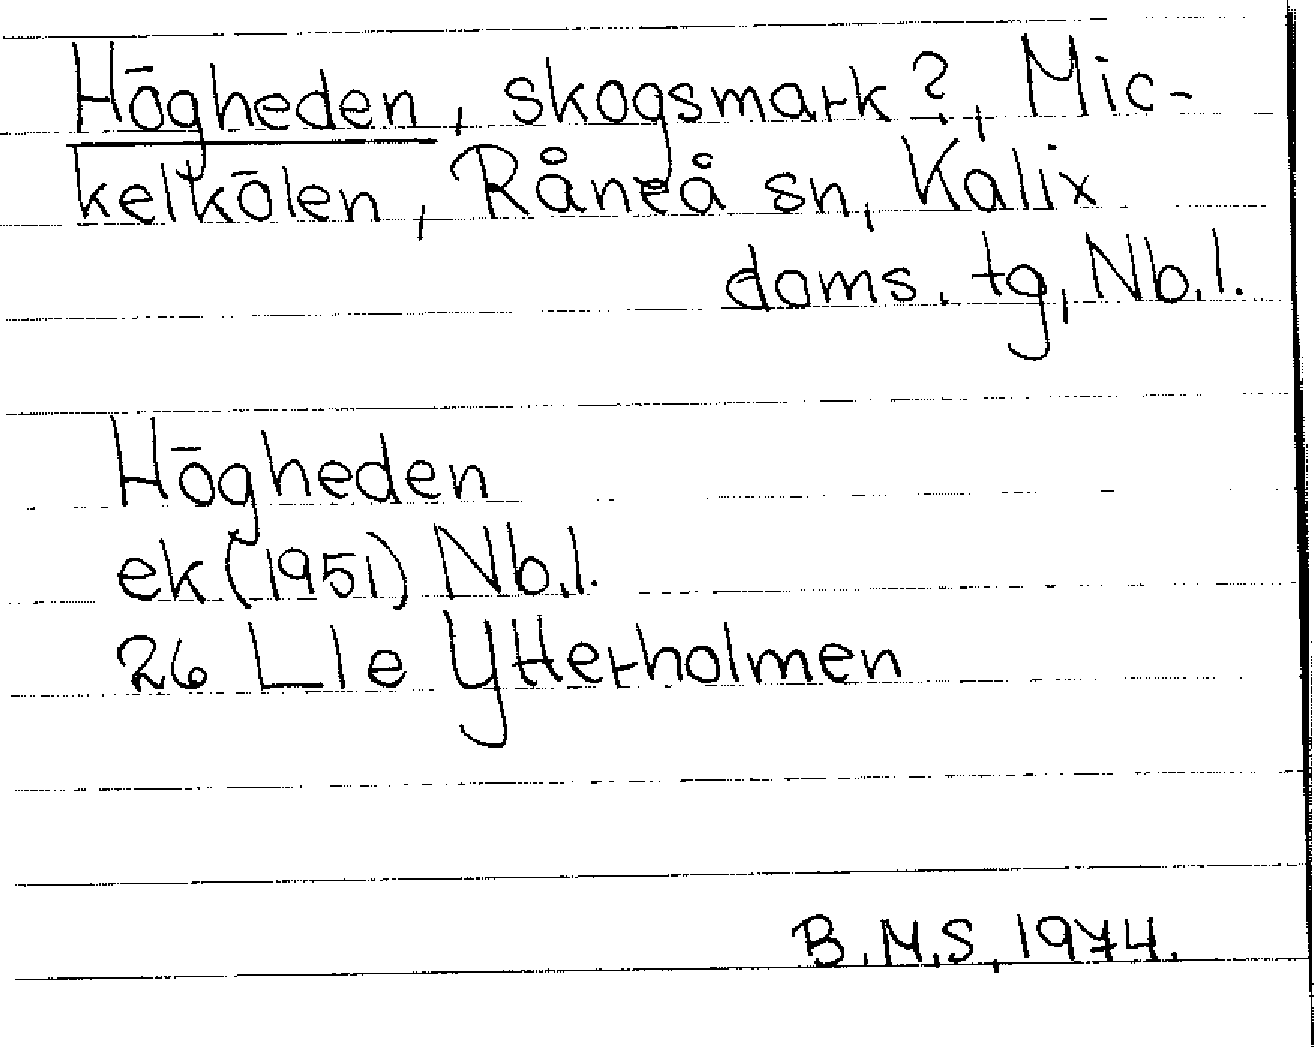 Högheden, skogsmark?, Mic-
kelkölen, Råneå sn, Kalix
doms. tg, Nb.l.
Högheden
ek (1951) Nb.l.
26 L le Ytterholmen
B.M.S, 1974.